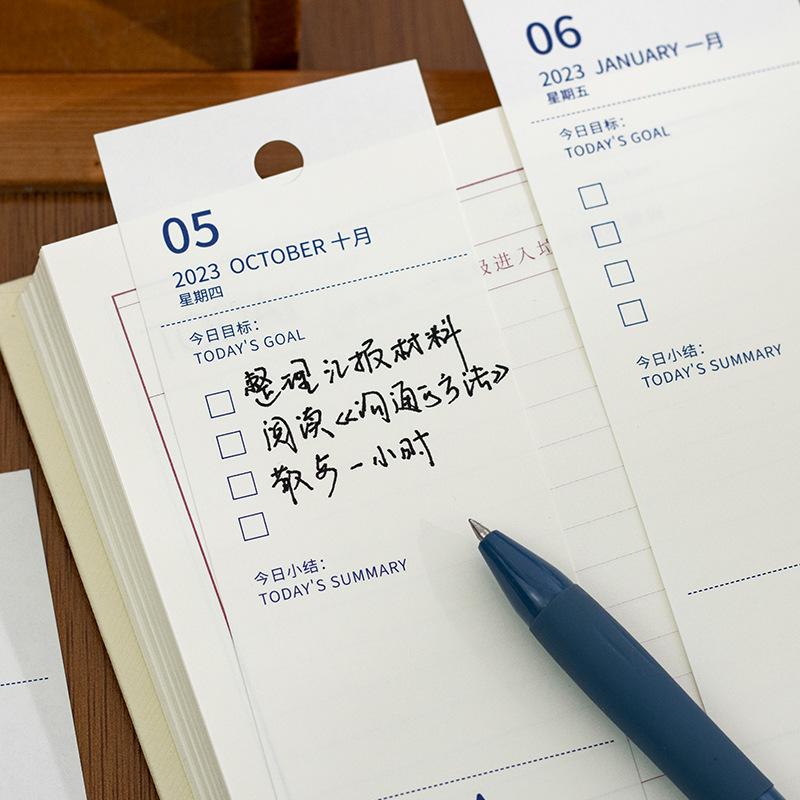 05
2023 OCTOBER 十月
星期四
今日目标:
TODAY'S GOAL
整理汇报材料
阅读《沟通的方法》
散步一小时
今日小结:
TODAY'S SUMMARY
06
2023 JANUARY 一月
星期五
今日目标:
TODAY'S GOAL
今日小结:
TODAY'S SUMMARY
进入